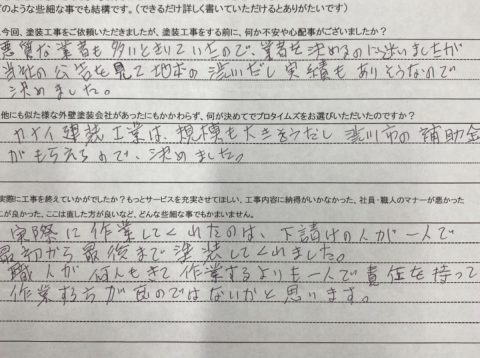 どのような些細な事でも結構です。（できるだけ詳しく書いていただけるとありがたいです）
.今回、塗装工事をご依頼いただきましたが、塗装工事をする前に、何か不安や心配事がございましたか？
悪質な業者も多いときいていたので、業者を決めるのに迷いましたが
当社の公告を見て地本の渋川だし実績もありそうなので
決めました。
他にも似た様な外壁塗装会社があったにもかかわらず、何が決めてでプロタイムズをお選びいただいたのですか？
カナイ建装工業は、規模も大きそうだし渋川市の補助金
がもらえるので、決めました。
実際に工事を終えていかがでしたか？もっとサービスを充実させてほしい、工事内容に納得がいかなかった、社員・職人のマナーが悪かった
こが良かった、ここは直した方が良いなど、どんな些細な事でもかまいません。
実際に作業してくれたのは、下請けの人が一人で
最初から最後まで塗装してくれました。
職人が何人もきて作業するよりも一人で責任を持って
作業する方が良いのではないかと思います。